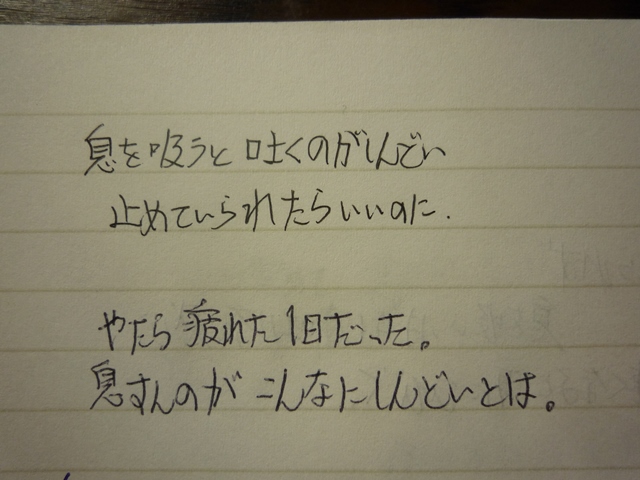 息を吸うと吐くのがしんどい
止めていられたらいいのに.
やたら疲れた1日だった。
息すんのがこんなにしんどいとは。